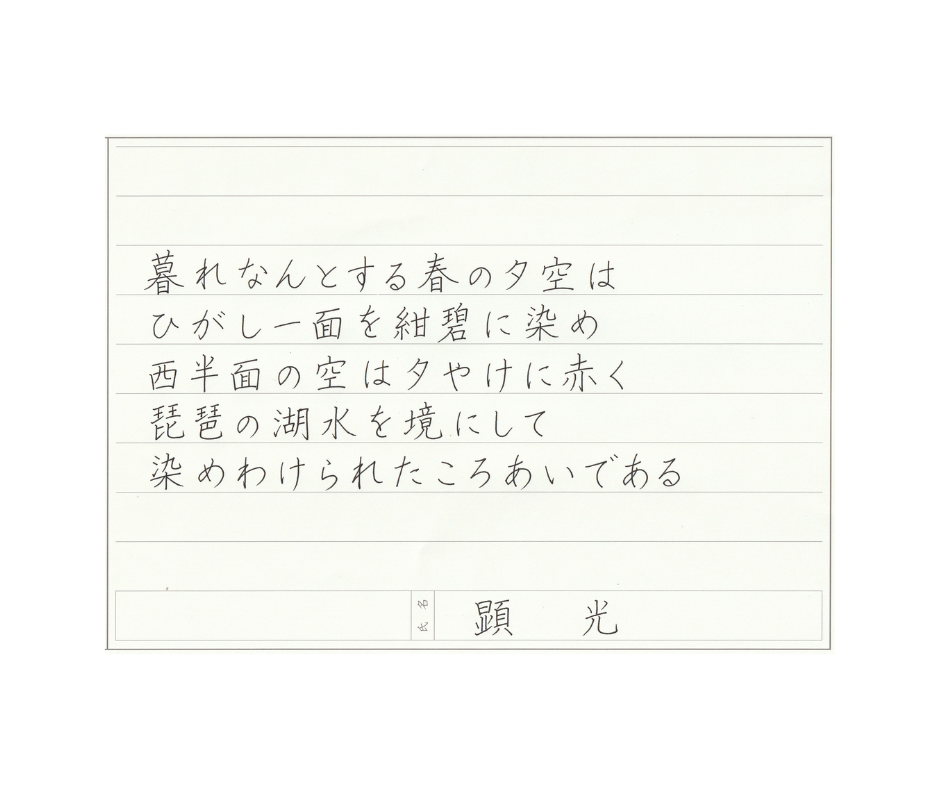 暮れなんとする春の夕空は
ひがし一面を紺碧に染め
西半面の空は夕やけに赤く
琵琶の湖水を境にして
染めわけられたころあいである
氏名
顕光